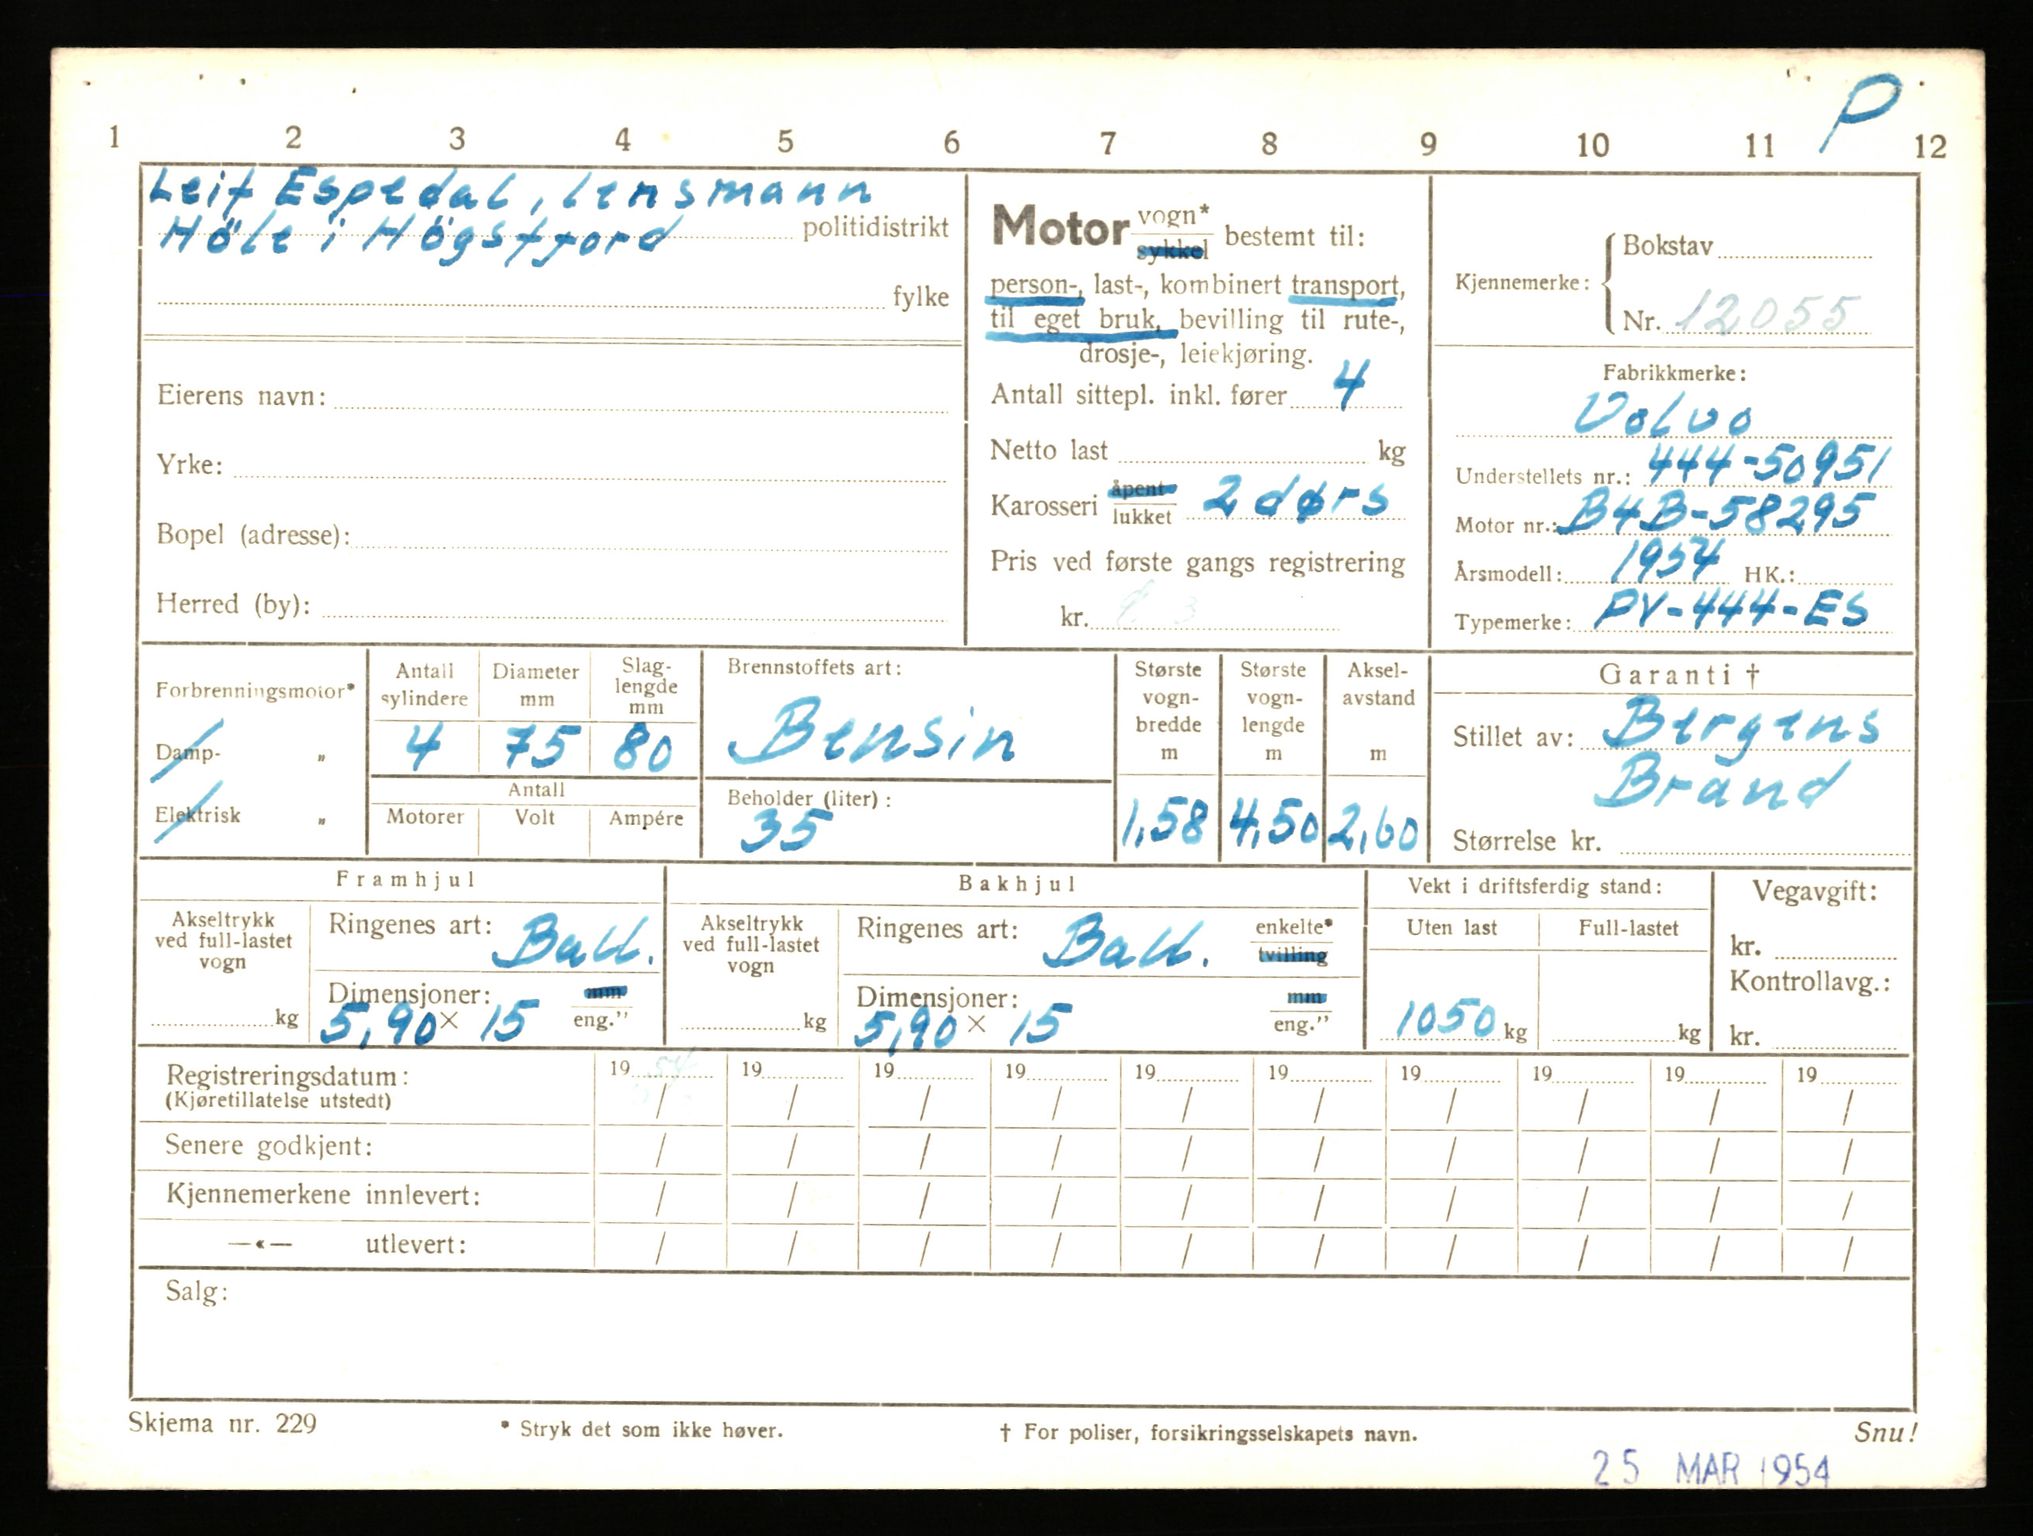 P
1 2 3 4 5 6 7 8 9 10 11 12
Leif Espedal, lensmann
Höle i Högsfjord politidistrikt
fylke
Eierens navn:
Yrke:
Bopel (adresse):
Herred (by):
Motor vogn* / sykkel bestemt til:
person-, last-, kombinert transport,
til eget bruk, bevilling til rute-,
drosje-, leiekjøring.
Antall sittepl. inkl. fører 4
Netto last kg
Karosseri åpent / lukket 2 dørs
Pris ved første gangs registrering
kr.
Kjennemerke: Bokstav
Nr. 12055
Fabrikkmerke:
Volvo
Understellets nr.: 444-50951
Motor nr.: B4B-58295
Årsmodell: 1954 HK.:
Typemerke: PV-444-ES
Forbrenningsmotor*
Damp- "
Elektrisk "
Antall sylindere
4
Diameter mm
75
Slag-
lengde
mm
80
Antall
Motorer Volt Ampére
Brennstoffets art:
Bensin
Beholder (liter):
35
Største
vogn-
bredde
m
1,58
Største
vogn-
lengde
m
4,50
Aksel-
avstand
m
2,60
Garanti †
Stillet av: Bergens
Brand
Størrelse kr.
Framhjul
Akseltrykk
ved full-lastet
vogn
kg
Ringenes art: Ball.
Dimensjoner: mm
5,90 × 15 eng."
Bakhjul
Akseltrykk
ved full-lastet
vogn
kg
Ringenes art: Ball. enkelte*
tvilling
Dimensjoner: mm
5,90 × 15 eng."
Vekt i driftsferdig stand:
Uten last Full-lastet
1050 kg kg
Vegavgift:
kr.
Kontrollavg.:
kr.
Registreringsdatum: 19 54 19 19 19 19 19 19 19 19 19
(Kjøretillatelse utstedt) / / / / / / / / / /
Senere godkjent: / / / / / / / / / /
Kjennemerkene innlevert: / / / / / / / / / /
—«— utlevert: / / / / / / / / / /
Salg:
Skjema nr. 229 * Stryk det som ikke høver. † For poliser, forsikringsselskapets navn. Snu!
25 MAR 1954